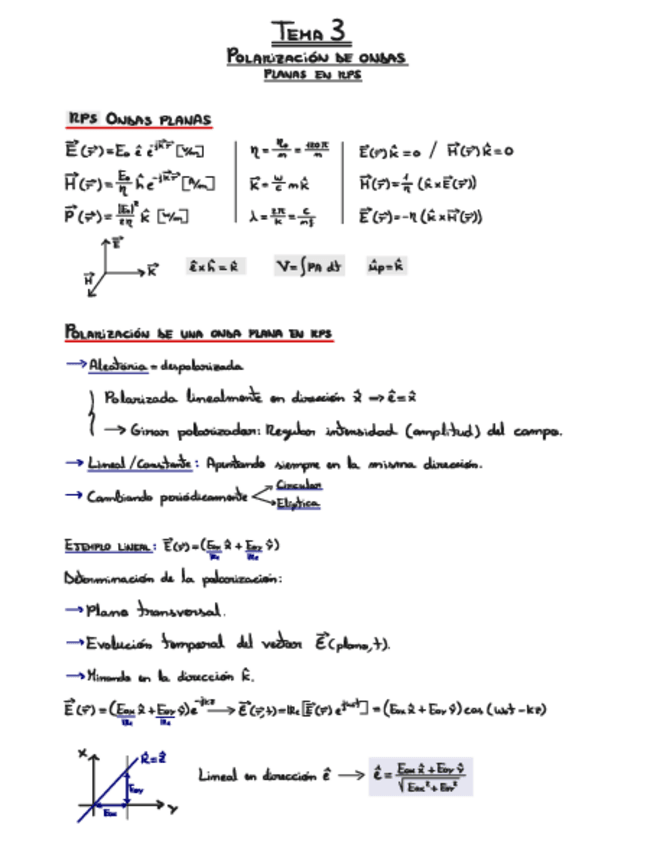 TEMA 3
POLARIZACIÓN DE ONDAS
PLANAS EN RPS
RPS ONDAS PLANAS
E⃗(r⃗)=E₀ ê e^(-jk⃗r⃗) [V/m] | η = η₀/n = 120π/n | E⃗(r⃗)k̂=0 / H⃗(r⃗)k̂=0
H⃗(r⃗)=E₀/η ĥ e^(-jk⃗r⃗) [A/m] | k⃗ = ω/c n k̂ | H⃗(r⃗)=1/η (k̂xE⃗(r⃗))
P⃗(r⃗)=|E₀|²/2η k̂ [W/m] | λ = 2π/k = c/nf | E⃗(r⃗)=-η (k̂xH⃗(r⃗))
E⃗
H⃗ K⃗ êxĥ=k̂ V=∫PA dt ûp=k̂
POLARIZACIÓN DE UNA ONDA PLANA EN RPS
→ Aleatoria = despolarizada
Polarizada linealmente en dirección x̂ ⇒ ê=x̂
→ Girar polarizador: Regular intensidad (amplitud) del campo.
→ Lineal/Constante: Apuntando siempre en la misma dirección.
→ Cambiando periódicamente
Circular
Elíptica
EJEMPLO LINEAL: E⃗(r⃗)=(E₀ₓ x̂ + E₀ᵧ ŷ)
Re Re
Determinación de la polarización:
→ Plano transversal.
→ Evolución temporal del vector E⃗(plano,t).
→ Mirando en la dirección k̂.
E⃗(r⃗)=(E₀ₓ x̂+E₀ᵧ ŷ)e^(-jkz) → E⃗(r⃗,t)=Re[E⃗(r⃗) e^(jωt)] = (E₀ₓ x̂ + E₀ᵧ ŷ) cos (ωt-kz)
Re Re
X K̂=Ẑ
E₀ᵧ
E₀ₓ Y
Lineal en dirección ê → ê = (E₀ₓ x̂ + E₀ᵧ ŷ)/√(E₀ₓ² + E₀ᵧ²)